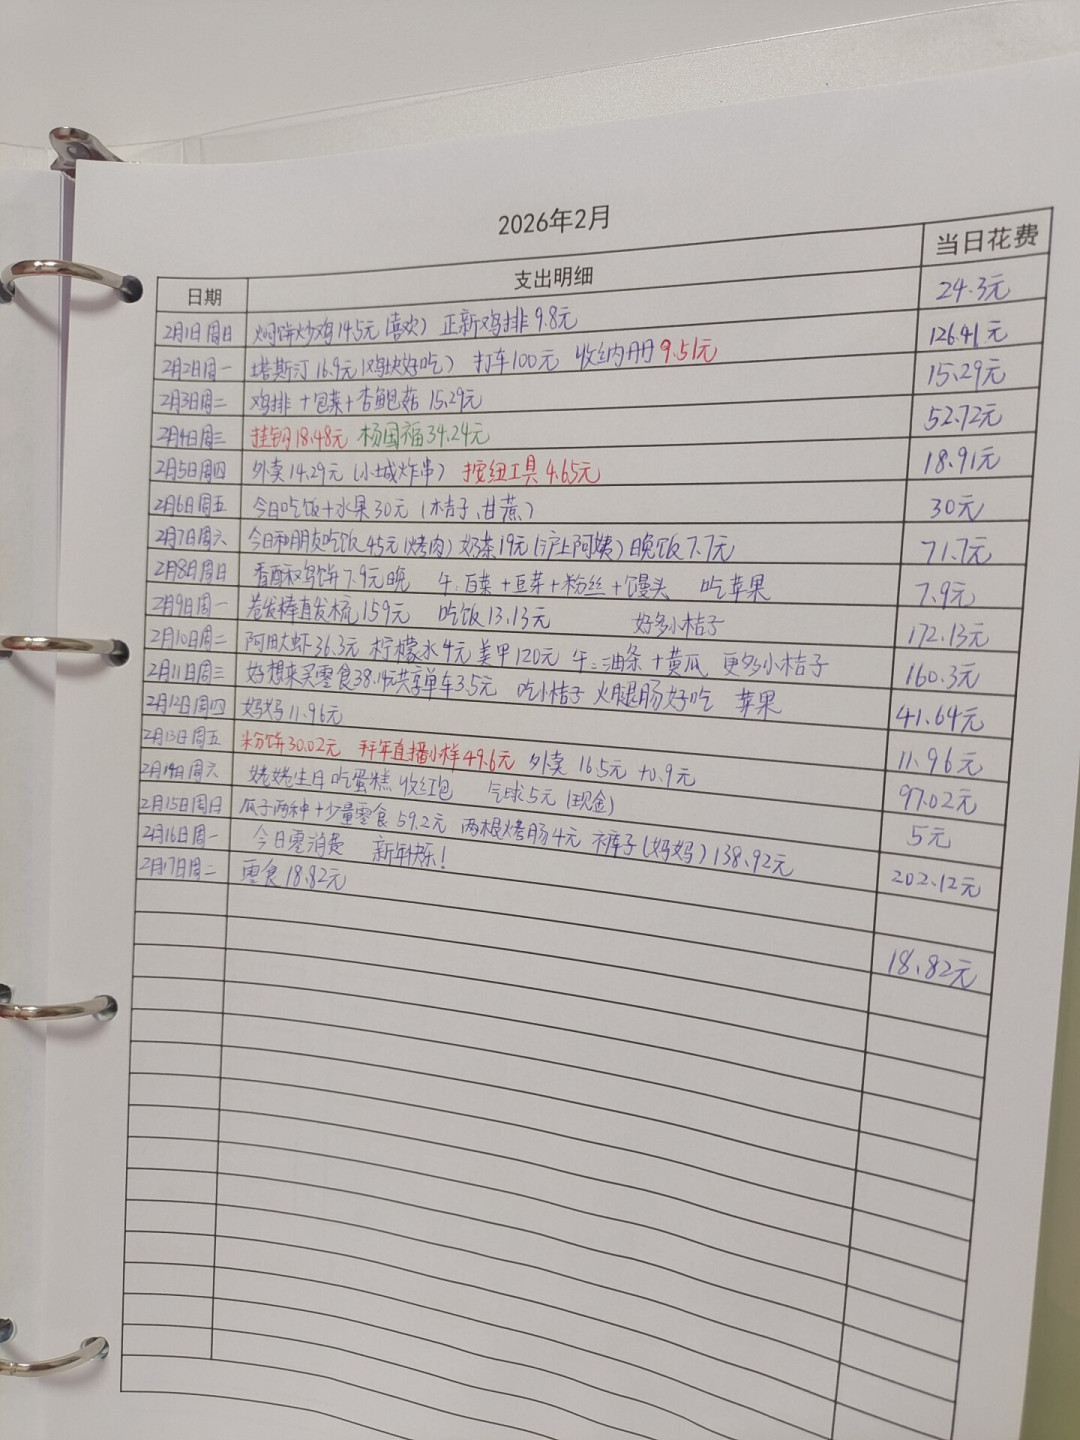 2026年2月
日期 支出明细 当日花费
2月1日周日 焖饼炒鸡14.5元(喜欢) 正新鸡排 9.8元 24.3元
2月2日周一 塔斯汀 16.9元(鸡块好吃) 打车100元 收纳内册 9.51元 126.41元
2月3日周二 鸡排+包菜+杏鲍菇 15.29元 15.29元
2月4日周三 挂钩18.48元 杨国福34.24元 52.72元
2月5日周四 外卖14.29元(小城炸串) 按纽工具 4.65元 18.91元
2月6日周五 今日吃饭+水果30元(木桔子、甘蔗) 30元
2月7日周六 今日和朋友吃饭45元(烤肉) 奶茶19元(沪上阿姨) 晚饭7.7元 71.7元
2月8日周日 鸡饼7.9元晚 午:白菜+豆芽+粉丝+馒头 吃苹果 7.9元
2月9日周一 卷发棒直发梳159元 吃饭13.13元 好多小桔子 172.13元
2月10日周二 阿甜大虾36.3元 柠檬水4元 美甲120元 午:油条+黄瓜 更多小桔子 160.3元
2月11日周三 好想来买零食38.14元共享单车3.5元 吃小桔子 火腿肠好吃 苹果 41.64元
2月12日周四 妈妈11.96元 11.96元
2月13日周五 粉饼30.02元 拜年直播小样49.6元 外卖 16.5元+0.9元 97.02元
2月14日周六 姥姥生日吃蛋糕 收红包 气球5元(现金) 5元
2月15日周日 瓜子两种+少量零食59.2元 两根烤肠4元 裤子(妈妈)138.92元 202.12元
2月16日周一 今日零消费 新年快乐!
2月17日周二 零食18.82元 18.82元